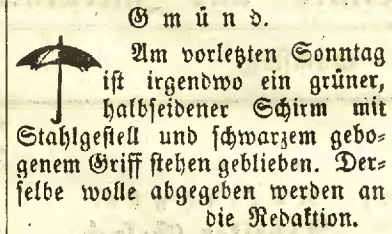 Gmünd.
Am vorletzten Sonntag
ist irgendwo ein grüner,
halbseidener Schirm mit
Stahlgestell und schwarzem gebo-
genem Griff stehen geblieben. Der-
selbe wolle abgegeben werden an
die Redaktion.